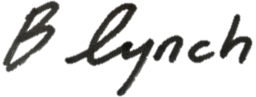 B lynch